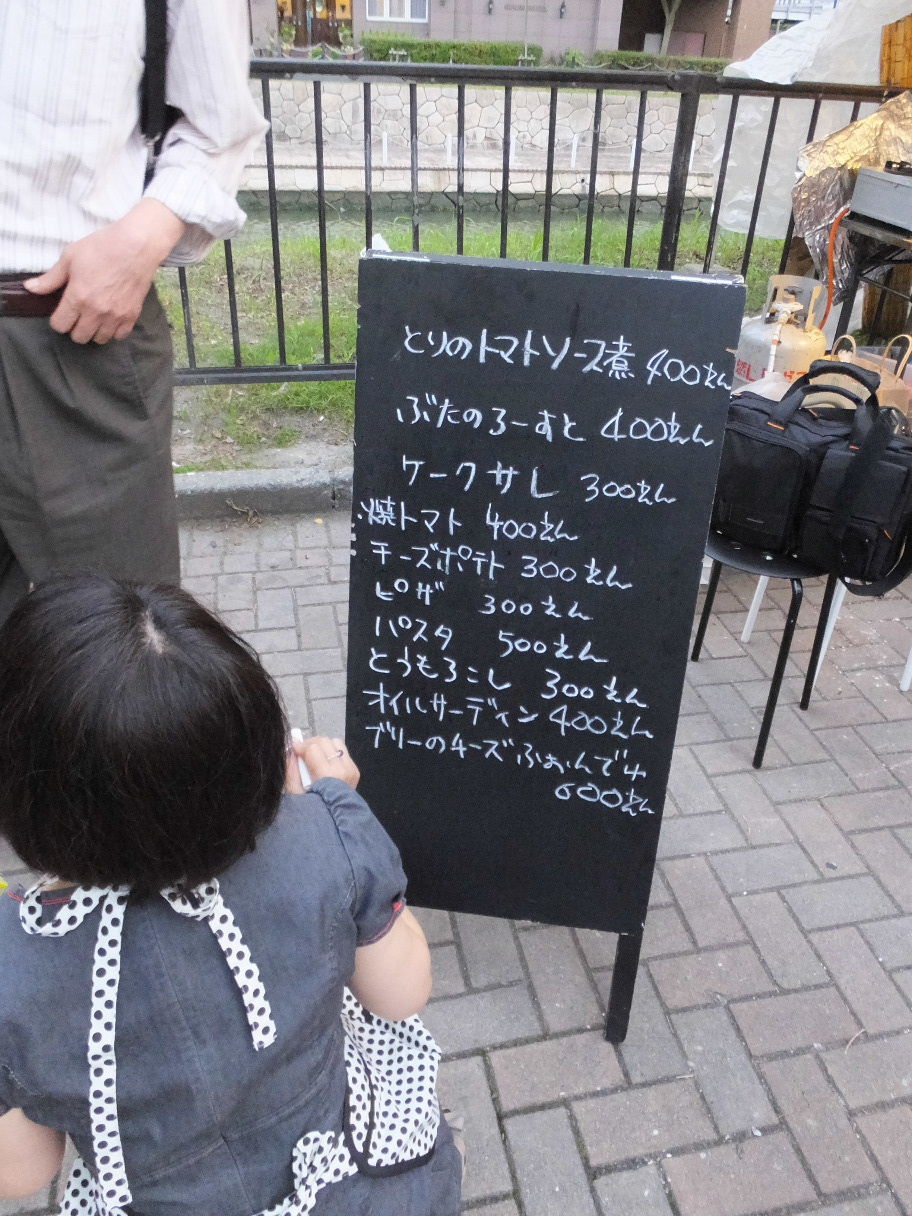 とりのトマトソース煮 400えん
ぶたのろーすと 400えん
ケークサレ 300えん
焼トマト 400えん
チーズポテト 300えん
ピザ 300えん
パスタ 500えん
とうもろこし 300えん
オイルサーディン 400えん
ブリーのチーズふぉんでゅ
600えん